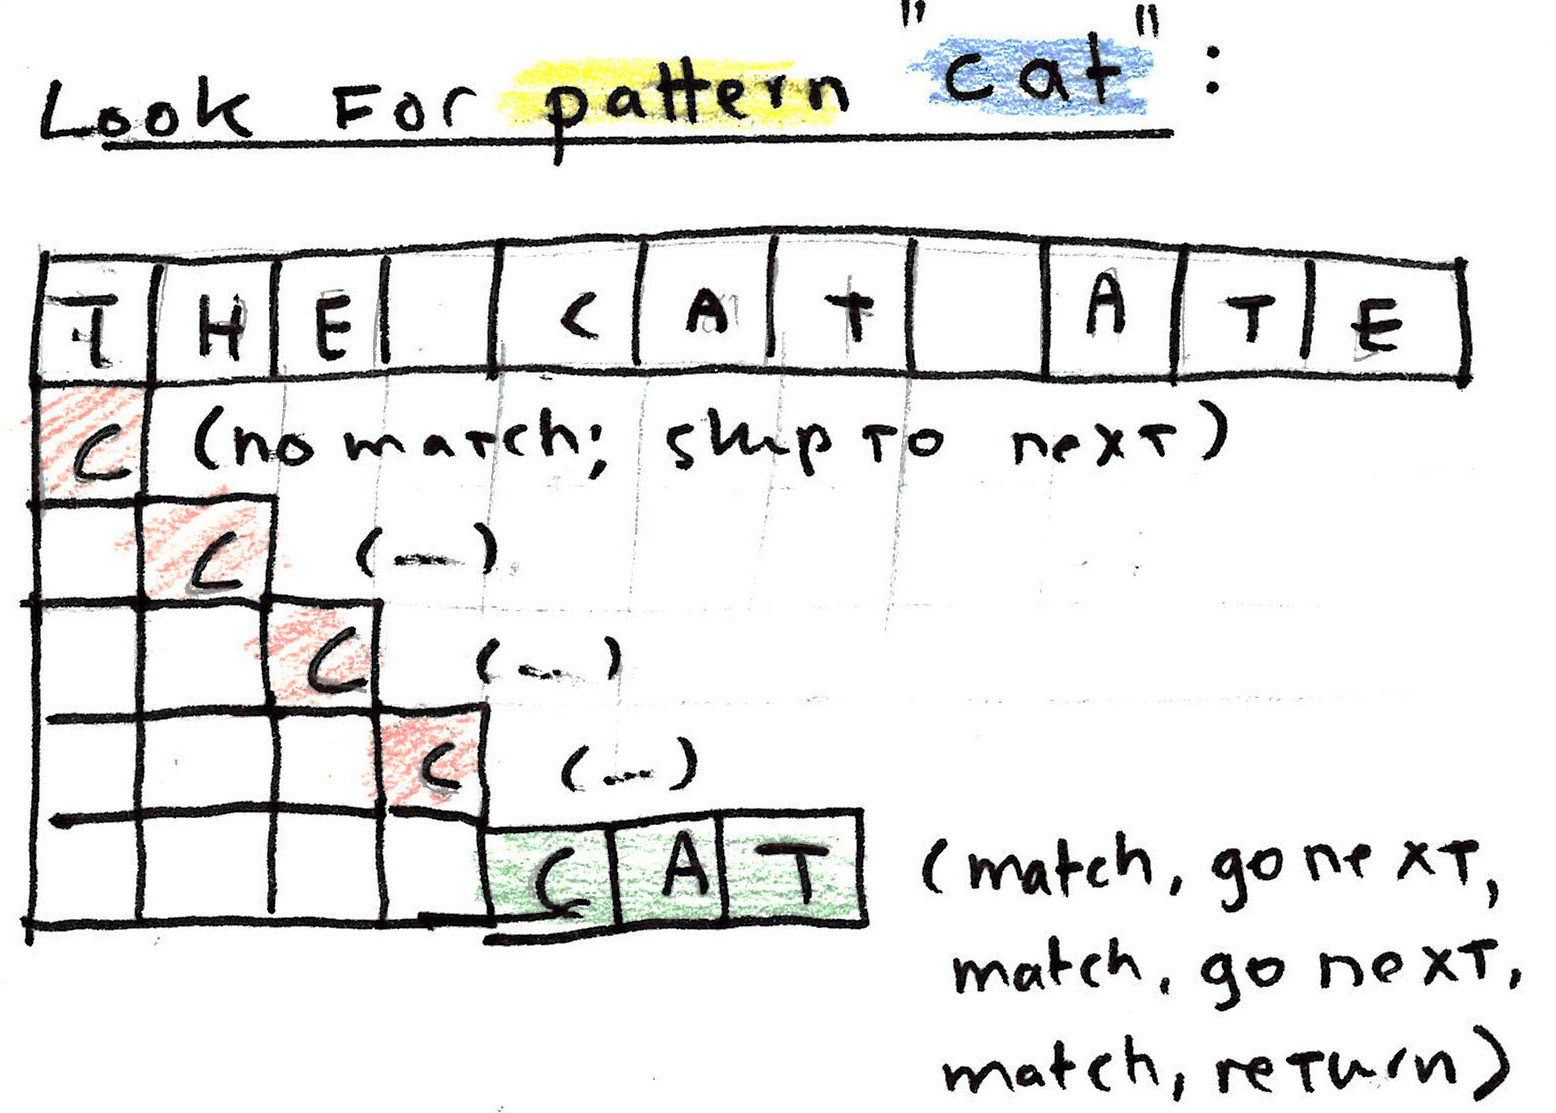 Look For pattern "cat":
THE CAT ATE
C (no match; skip to next)
C (...)
C (...)
C (...)
CAT (match, go next,
match, go next,
match, return)